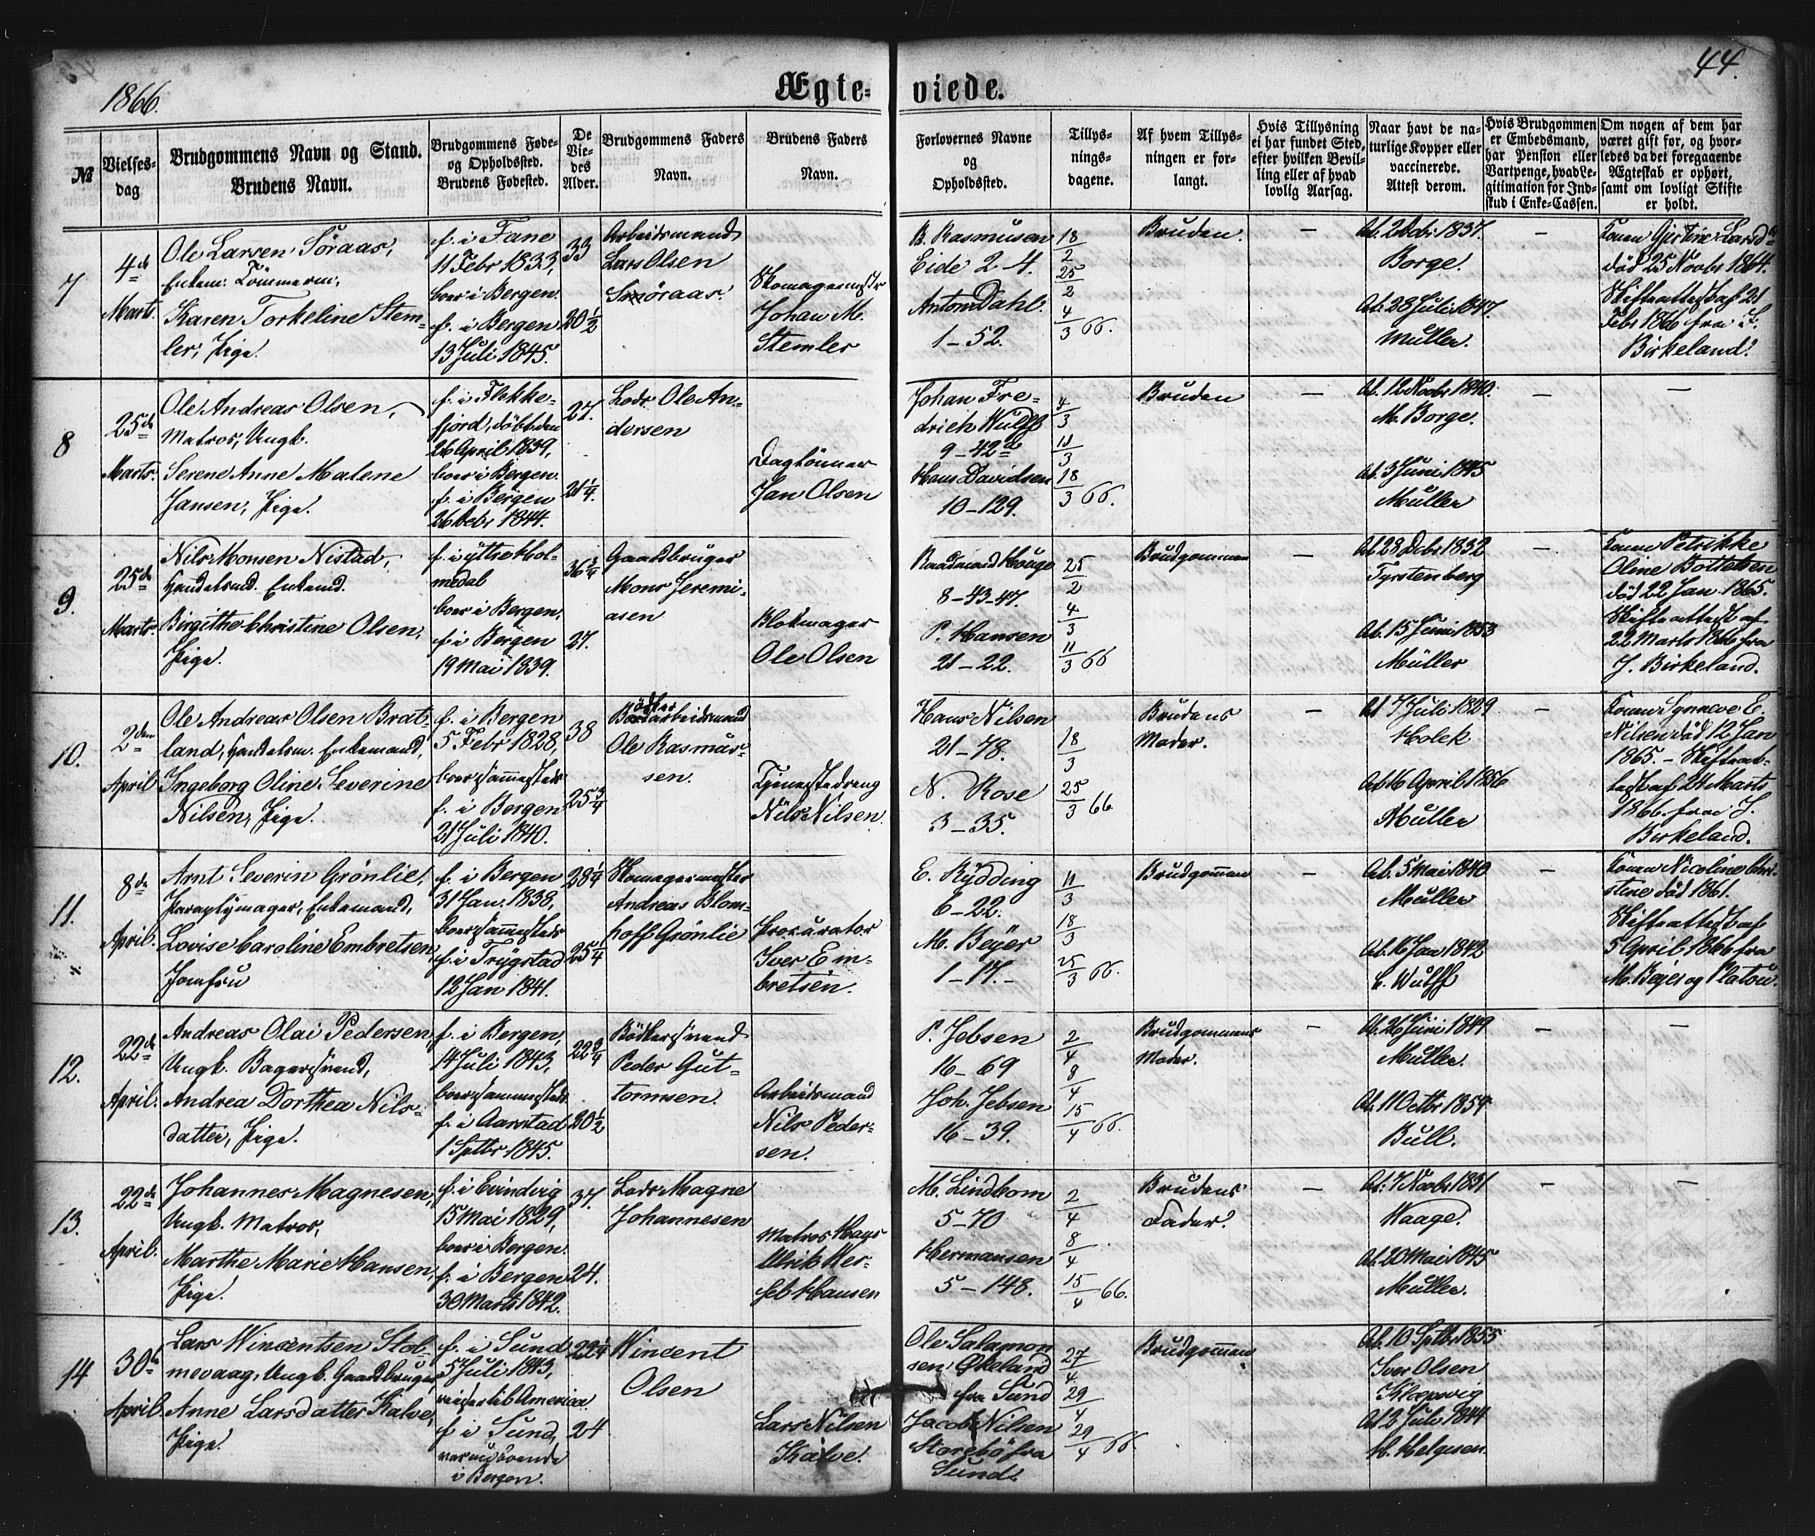 1866.
Ægte-
viede.
44.
№
Vielses-
dag
Brudgommens Navn og Stand.
Brudens Navn.
Brudgommens Føde-
og Opholdssted.
Brudens Fødested.
De
Vie-
des
Alder.
Brudgommens Faders
Navn.
Brudens Faders
Navn.
Forlovernes Navne
og
Opholdssted.
Tillys-
nings-
dagene.
Af hvem Tillys-
ningen er for-
langt.
Hvis Tillysning
ei har fundet Sted,
efter hvilken Bevil-
ling eller af hvad
lovlig Aarsag.
Naar havt de na-
turlige Kopper eller
vaccinerede.
Attest derom.
Hvis Brudgommen
er Embedsmand,
har Pension eller
Vartpenge, hvad Le-
gitimation for Ind-
skud i Enke-Cassen.
Om nogen af dem har
været gift før, og hvor-
ledes da det foregaaende
Ægteskab er ophørt,
samt om lovligt Skifte
er holdt.
7
4de
Marts.
Ole Larsen Søraas,
Enkem: Tømmerm,
Karen Torkeline Stem-
ler, Pige.
f. i Fane
11 Febr 1833,
boer i Bergen.
f. i Bergen
13 Juli 1845.
33
20 1/2
Arbeidsmand
Lars Olsen
Smøraas.
Skomagermestr
Johan M.
Stemler
B. Rasmusen
Eide 2-4.
Anton Dahl.
1-52.
18/2
25/2
4/3 66.
Bruden.
–
At. 2 Debr 1837.
Borge.
At. 28 Juli 1847.
Müller.
–
Konen Gjertine Larsd
død 25 Novbr 1864.
Skifteattest af 21
Febr 1866 fra J.
Birkeland.
8
25de
Marts.
Ole Andreas Olsen,
Matros, Ungk.
Serene Anne Malene
Jansen, Pige.
f. i Flekke-
fjord, døbt den
26 April 1839,
boer i Bergen.
f. i Bergen
26 Debr 1844.
27.
21 1/4.
Lods Ole An-
dersen
Daglønner
Jan Olsen
Johan Fre-
drich Wulff
9-42a
Hans Davidsen
10-129.
4/3
11/3
18/3 66.
Bruden
–
At. 12 Novbr 1840.
M. Borge.
At. 3 Juni 1845
Müller
–
–
9.
25de
Marts.
Nils Monsen Nistad,
Handelsmd. Enkemd.
Birgithe Christine Olsen,
Pige.
f. i ytthe Hol-
medal
boer i Bergen,
f. i Bergen
19 Mai 1839.
36 3/4
27.
Gaardbruger
Mons Jeremi-
asen
Blokmager
Ole Olsen
Raadmand Houge
8-43-47.
P. Hansen
21-22.
25/2
4/3
11/3 66
Brudgommen
–
At. 28 Debr 1832
Fyrstenberg
At. 15 Juni 1853
Müller
–
Konen Petrikke
Oline Bottelsen
død 22 Jan 1865.
Skifteattest af
22 Marts 1866 fra
J. Birkeland.
10.
2den
April
Ole Andreas Olsen Brat-
land, Handelsm. Enkemand,
Ingeborg Oline Severine
Nilsen, Pige.
f. i Bergen
5 Febr 1828,
boer sammesteds
f. i Bergen
21 Juli 1840.
38
25 3/4
Ole Rasmus-
sen.
Tjenestedreng
Nils Nilsen.
Hans Nilsen
21-78.
N. Rose
3-35.
18/3
25/3 66
Brudens
Moder.
–
At 7 Juli 1829
Holck
At 16 April 1856
Müller
–
Konen Synneve E.
Nilsen død 12 Jan
1865. - Skifteat-
test af 24 Marts
1866 fra J.
Birkeland.
11.
8de
April.
Arnt Severin Grønlie,
Paraplymager, Enkemand,
Lovise Caroline Embretsen,
Jomfru
f. i Bergen
31 Jan. 1838,
boer sammesteds
f. i Trygstad
12 Jan 1841.
28 1/4
25 1/4
Skomagermester
Andreas Blom-
hoff Grønlie
Procurator
Iver Em-
bretsen.
E. Rydding
6-22.
M. Beyer
1-17.-
11/3
18/3
25/3 66.
Brudgommen
–
At. 5 Mai 1840
Müller
At. 16 Jan 1842
C. Wulff
–
Konen Nicoline Chri-
stine død 1861.
Skifteattest af
5 April 1866 fra
M. Beyer og Platou.
12.
22de
April.
Andreas Olai Pedersen,
Ungk. Bagersvend,
Andrea Dorthea Nils-
datter, Pige.
f. i Bergen,
14 Juli 1843,
boer sammesteds.
f. i Aarstad
1 Septbr 1845.
22 3/4
20 1/2
Bødkersvend
Peder Gut-
tormsen
Arbeidsmand
Nils Peder-
sen.
P. Jebsen
16-69
Joh. Jebsen
16-39.
2/4
8/4
15/4 66.
Brudgommens
Moder.
–
At. 26 Juni 1849.
Müller.
At. 11 Octbr 1854
Bull.
–
–
13.
22de
April.
Johannes Magnesen,
Ungk. Matros,
Marthe Marie Hansen,
Pige.
f. i Evindvig
15 Mai 1829,
boer i Bergen.
f. i Bergen
30 Marts 1842.
37.
24.
Lods Magne
Johannesen
Matros Hans
Ulrik Wer-
feldt Hansen
M. Lindbom
5-70
Hermansen
5-148.
2/4
8/4
15/4 66.
Brudens
Fader.
–
At. 7 Novbr 1831
Waage.
At. 20 Mai 1845
Müller.
–
–
14
30te
April
Lars Wincentsen Stol-
mevaag, Ungk. Gaardbruger
Anne Larsdatter Kalve,
Pige.
f. i Sund
5 Juli 1843,
reiser til America
f. i Sund,
værendes
i Bergen.
22 3/4
24
Wincent
Olsen
Lars Nilsen
Kalve.
Ole Salamon
sen Økland
fra Sund
Jacob Nilsen
Storebø fra
Sund.
27/4
29/4
29/4 66.
Brudgommen
At. 10 Septbr 1855
Iver Olsen
Klepsvig
At 2 Juli 1844
H. Helgesen